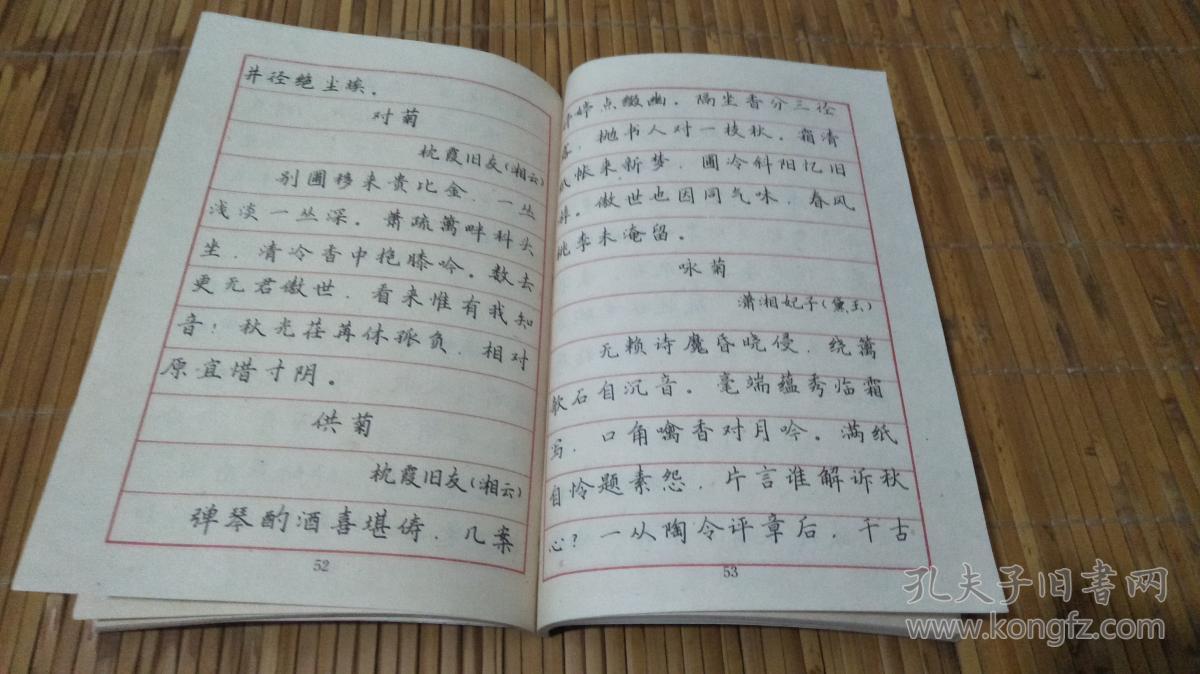 井径绝尘埃。
对菊
枕霞旧友(湘云)
别圃移来贵比金，一丛
浅淡一丛深。萧疏篱畔科头
坐，清冷香中抱膝吟。数去
更无君傲世，看来惟有我知
音！秋光荏苒休孤负，相对
原宜惜寸阴。
供菊
枕霞旧友(湘云)
弹琴酌酒喜堪俦，几案
52
婷点缀幽。隔坐香分三径
，抛书人对一枝秋。霜清
帐来新梦，圃冷斜阳忆旧
。傲世也因同气味，春风
桃李未淹留。
咏菊
潇湘妃子(黛玉)
无赖诗魔昏晓侵，绕篱
欹石自沉音。毫端蕴秀临霜
写，口角噙香对月吟。满纸
自怜题素怨，片言谁解诉秋
心？一从陶令评章后，千古
53
孔夫子旧书网
www.kongfz.com